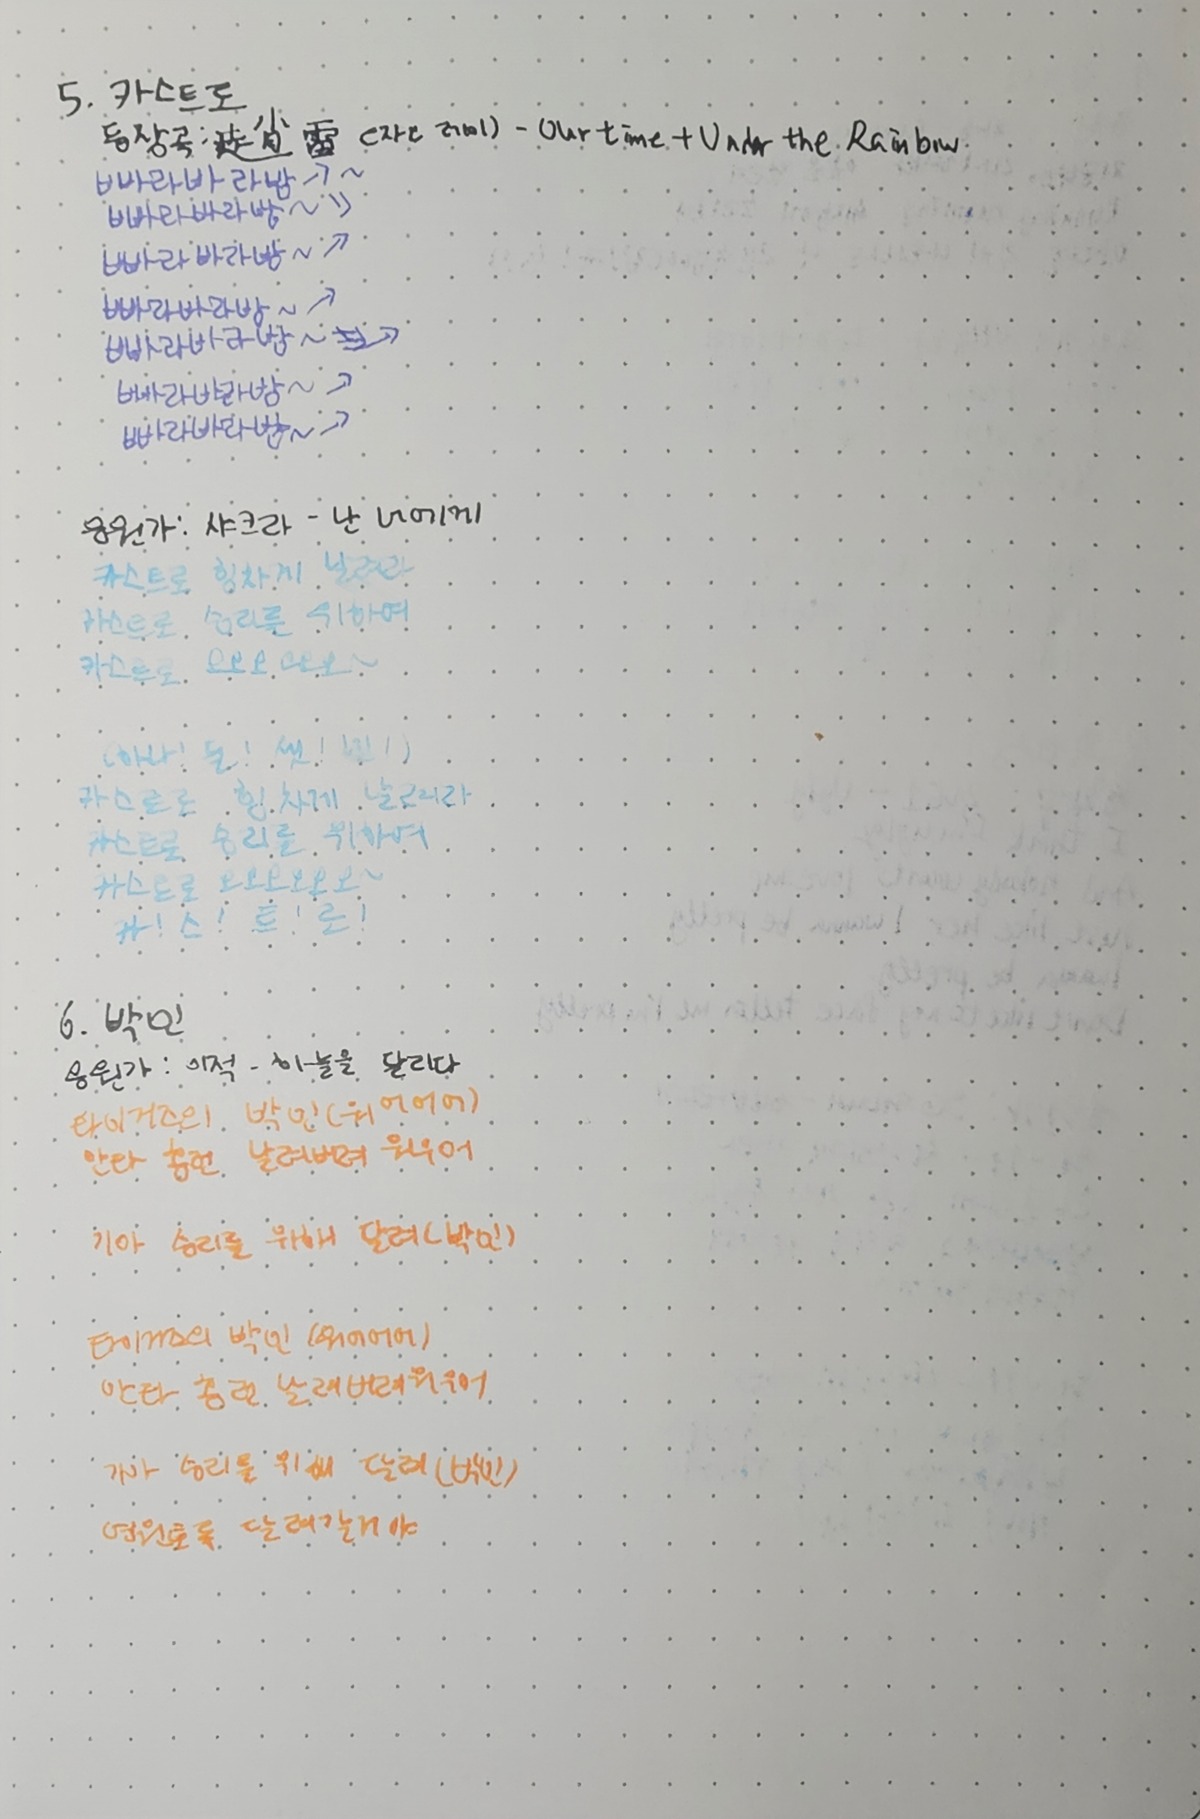 5. 카스트로
등장곡: 雷 (쟈오 레이) - Our time + Under the Rainbow
빠라바라밤↗~
빠라바라빰~))
빠라바라밤~↗
빠라바라방~↗
빠라바라밤~↗
빠라바라밤~↗
빠라바라밤~↗
응원가: 샤크라 - 난 너에게
카스트로 힘차게 날려라
카스트로 승리를 위하여
카스트로 오오오오오오~
(하나! 둘! 셋! 넷!)
카스트로 힘차게 날려라
카스트로 승리를 위하여
카스트로 오오오오오오~
카! 스! 트! 로!
6. 박민
응원가: 이적 - 하늘을 달리다
타이거즈의 박민(워어어어)
안타 홈런 날려버려 워우어
기아 승리를 위해 달려(박민)
타이거즈의 박민(워어어어)
안타 홈런 날려버려 워우어
기아 승리를 위해 달려(박민)
영원토록 달려갈거야